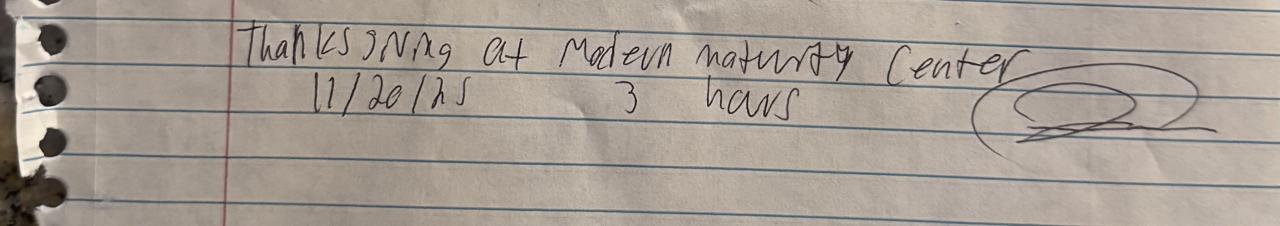 Thanksgiving at Modern maturity Center
11/20/25 3 hours